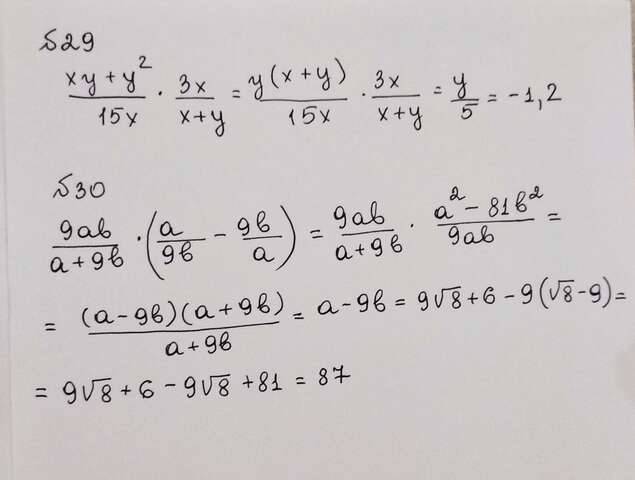 №29
(xy + y²)/(15x) · (3x)/(x+y) = (y(x+y))/(15x) · (3x)/(x+y) = y/5 = -1,2
№30
(9ab)/(a+9b) · (a/(9b) - (9b)/a) = (9ab)/(a+9b) · (a² - 81b²)/(9ab) =
= ((a-9b)(a+9b))/(a+9b) = a-9b = 9√8+6-9(√8-9) =
= 9√8 + 6 - 9√8 + 81 = 87